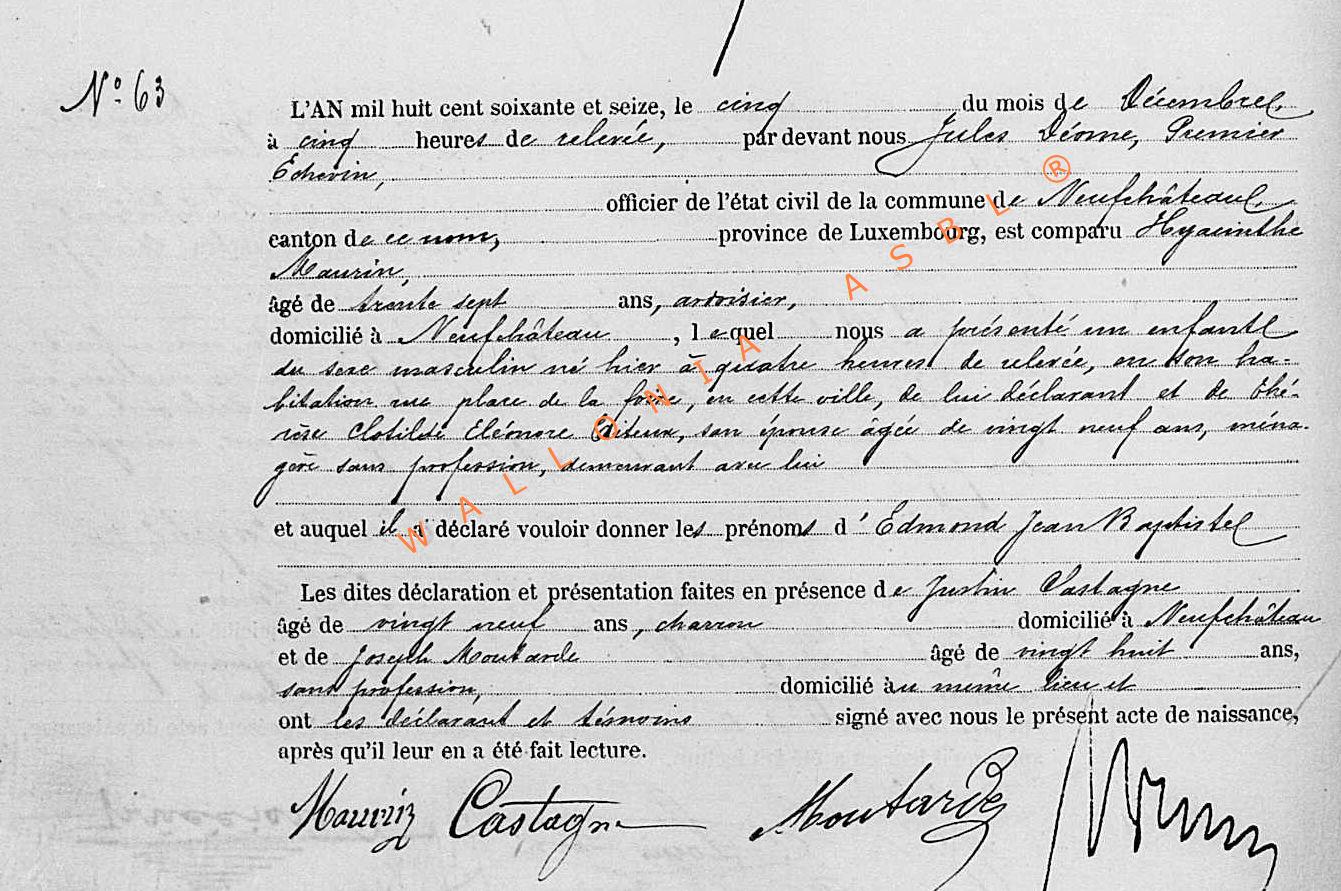 N° 63
L'AN mil huit cent soixante et seize, le cinq du mois de Décembre
à cinq heures de relevée, par devant nous Jules Déome, Premier
Echevin,
officier de l'état civil de la commune de Neufchâteau,
canton de ce nom, province de Luxembourg, est comparu Hyacinthe
Maurin,
âgé de trente sept ans, ardoisier,
domicilié à Neufchâteau, lequel nous a présenté un enfant
du sexe masculin né hier à quatre heures de relevée, en son ha-
bitation rue place de la foire, en cette ville, de lui déclarant et de Thé-
rèse Clotilde Eléonore son épouse âgée de vingt neuf ans, ména-
gère sans profession, demeurant avec lui
et auquel il a déclaré vouloir donner les prénoms d'Edmond Jean Baptiste
Les dites déclaration et présentation faites en présence de Justin Castagne
âgé de vingt neuf ans, charron domicilié à Neufchâteau
et de Joseph Moutarde âgé de vingt huit ans,
sans profession, domicilié au même lieu et
ont les déclarant et témoins signé avec nous le présent acte de naissance,
après qu'il leur en a été fait lecture.
Maurin Castagne Moutarde
WALLONIA ASBL ®